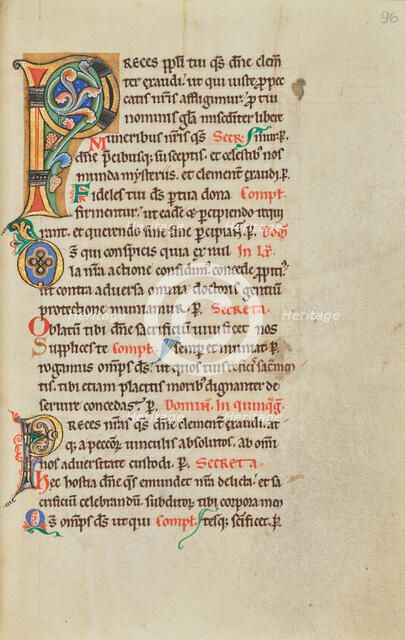 96
Preces ppľi tui qs dne clem
ter exaudi. ut qui iuste p pec
catis nris affligimur. p tui
nominis gla misediter liberē
Muneribus nris qs Secr. tīmur. p.
dne precibusq; susceptis. et celestib' nos
munda mysteriis. et clement exaudi. P.
Fideles tui ds p tua dona Compt.
firmentur. ut eade & percipiendo requi
rant. et querendo sine fine percipiant. P.
Ds qui conspicis quia ex nul In lx.
la nra actione confidim'. concede ppiti'
ut contra adversa omnia doctoris gentiū
protectione muniamur. P. Secreta
Oblatū tibi dne sacrificiū vivificet nos
Supplices te Compt. semper et muniat. P.
rogamus omps ds. ut quos tuis reficis sacmen
tis. tibi etiam placitis morib' dignanter de
servire concedas. P. Domin. In quinqg.
Preces nras qs dne clementer exaudi. at
q; a peccatorȝ vinculis absolutos. ab omī
nos adversitate custodi. P. Secreta.
Hec hostia dne qs emundet nra delicta. et sa
crificiū celebrandū. subditorȝ tibi corpora men
Qs omps ds ut qui Compt. tesq; scificet. P.
Heritage
Heritage
Heritage
Heritage